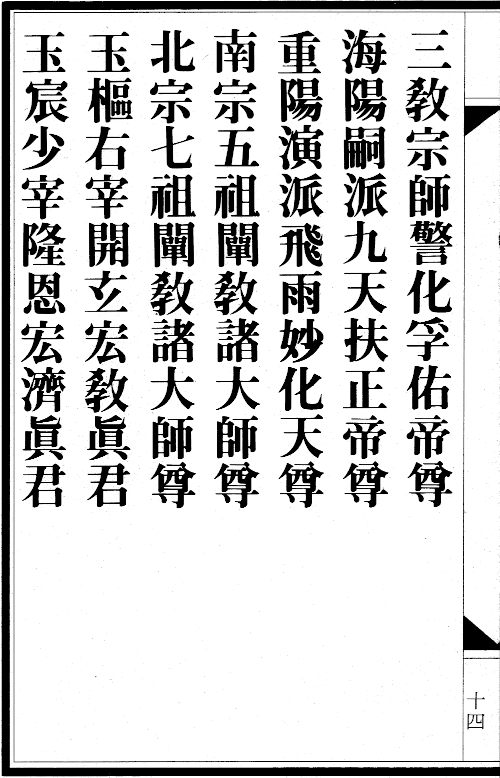 三敎宗師警化孚佑帝尊
海陽嗣派九天扶正帝尊
重陽演派飛雨妙化天尊
南宗五祖闡敎諸大師尊
北宗七祖闡敎諸大師尊
玉樞右宰開玄宏敎眞君
玉宸少宰隆恩宏濟眞君
十四